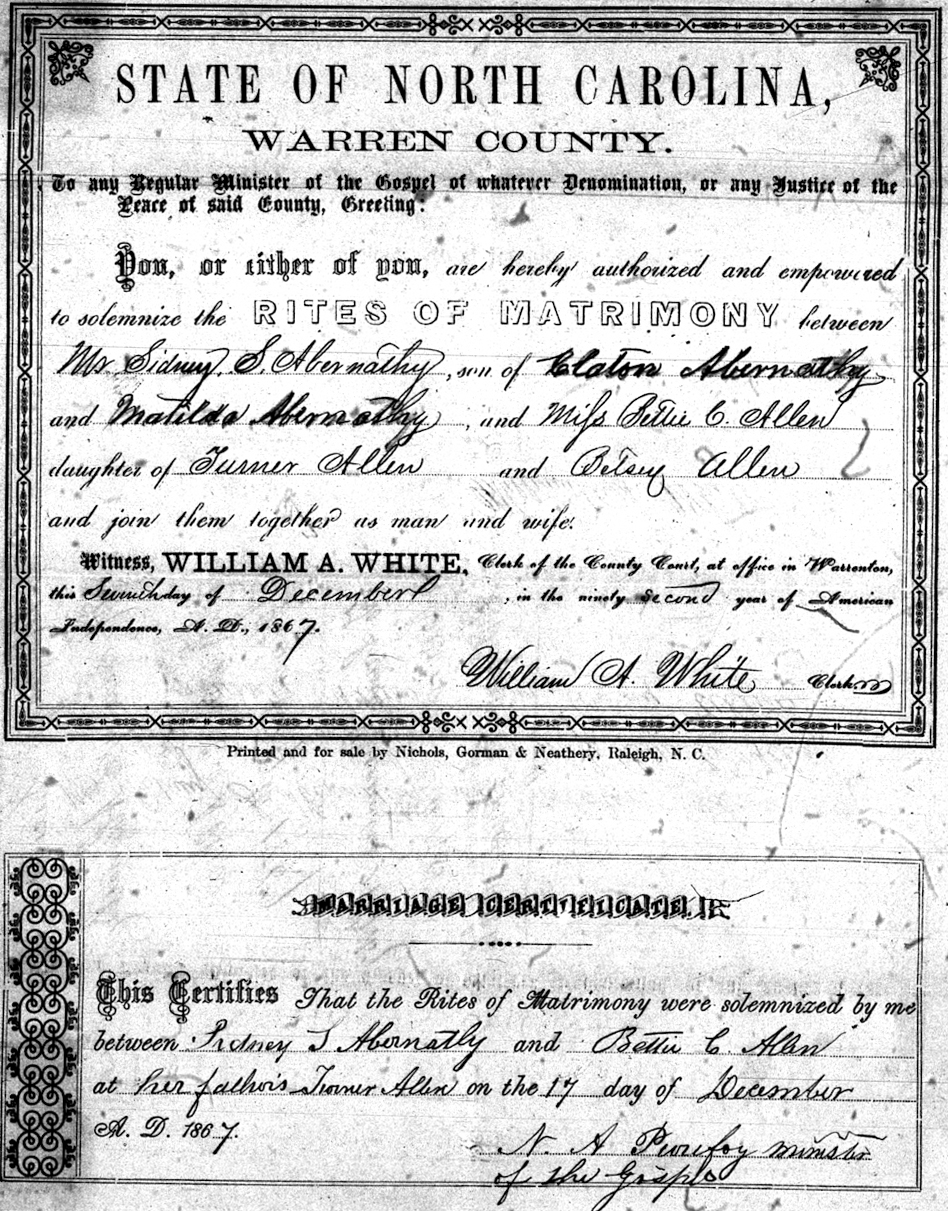 STATE OF NORTH CAROLINA,
WARREN COUNTY.
To any Regular Minister of the Gospel of whatever Denomination, or any Justice of the
Peace of said County, Greeting:
You, or either of you, are hereby authorized and empowered
to solemnize the RITES OF MATRIMONY between
Mr Sidney S. Abernathy, son of Claton Abernathy
and Matilda Abernathy, and Miss Bettie C. Allen
daughter of Turner Allen and Betsey Allen
and join them together as man and wife.
Witness, WILLIAM A. WHITE, Clerk of the County Court, at office in Warrenton,
this day of December, in the ninety second year of American
Independence, A. D., 1867.
William A. White Clerk.
Printed and for sale by Nichols, Gorman & Neathery, Raleigh, N. C.
MARRIAGE CERTIFICATE.
This Certifies That the Rites of Matrimony were solemnized by me
between Sidney S Abernathy and Bettie C Allen
at her father's Turner Allen on the 17 day of December
A. D. 1867.
N. A Purefoy minister
of the Gospel